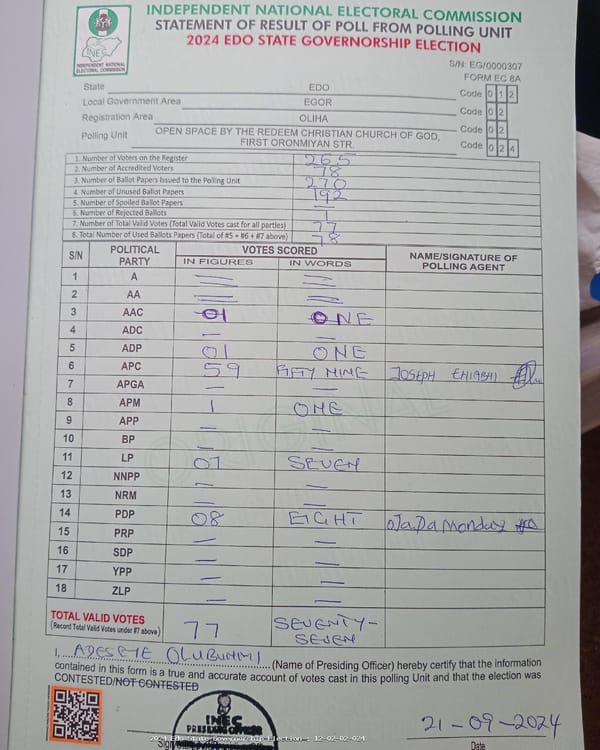 INDEPENDENT NATIONAL ELECTORAL COMMISSION
STATEMENT OF RESULT OF POLL FROM POLLING UNIT
2024 EDO STATE GOVERNORSHIP ELECTION
INEC
INDEPENDENT NATIONAL
ELECTORAL COMMISSION
S/N: EG/0000307
FORM EC 8A
State EDO Code 0 1 2
Local Government Area EGOR Code 0 2
Registration Area OLIHA Code 0 2
Polling Unit OPEN SPACE BY THE REDEEM CHRISTIAN CHURCH OF GOD, FIRST ORONMIYAN STR. Code 0 2 4
1. Number of Voters on the Register 265
2. Number of Accredited Voters 78
3. Number of Ballot Papers Issued to the Polling Unit 270
4. Number of Unused Ballot Papers 192
5. Number of Spoiled Ballot Papers —
6. Number of Rejected Ballots 1
7. Number of Total Valid Votes (Total Valid Votes cast for all parties) 77
8. Total Number of Used Ballots Papers (Total of #5 + #6 + #7 above) 78
S/N POLITICAL PARTY VOTES SCORED NAME/SIGNATURE OF POLLING AGENT
IN FIGURES IN WORDS
1 A — —
2 AA — —
3 AAC 01 ONE
4 ADC — —
5 ADP 01 ONE
6 APC 59 FIFTY NINE JOSEPH
7 APGA — —
8 APM 1 ONE
9 APP — —
10 BP — —
11 LP 07 SEVEN
12 NNPP — —
13 NRM — —
14 PDP 08 EIGHT OJADA MONDAY
15 PRP — —
16 SDP — —
17 YPP — —
18 ZLP — —
TOTAL VALID VOTES 77 SEVENTY-SEVEN
(Record Total Valid Votes under #7 above)
I, ADESEYE OLUBUNMI (Name of Presiding Officer) hereby certify that the information
contained in this form is a true and accurate account of votes cast in this polling Unit and that the election was
CONTESTED/NOT CONTESTED
INEC
21-09-2024
Date